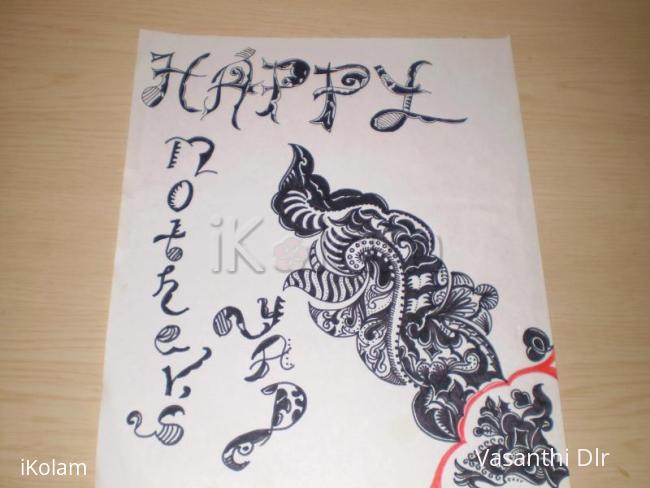 HAPPY
mothers
DAY
iKolam
iKolam
Vasanthi Dlr